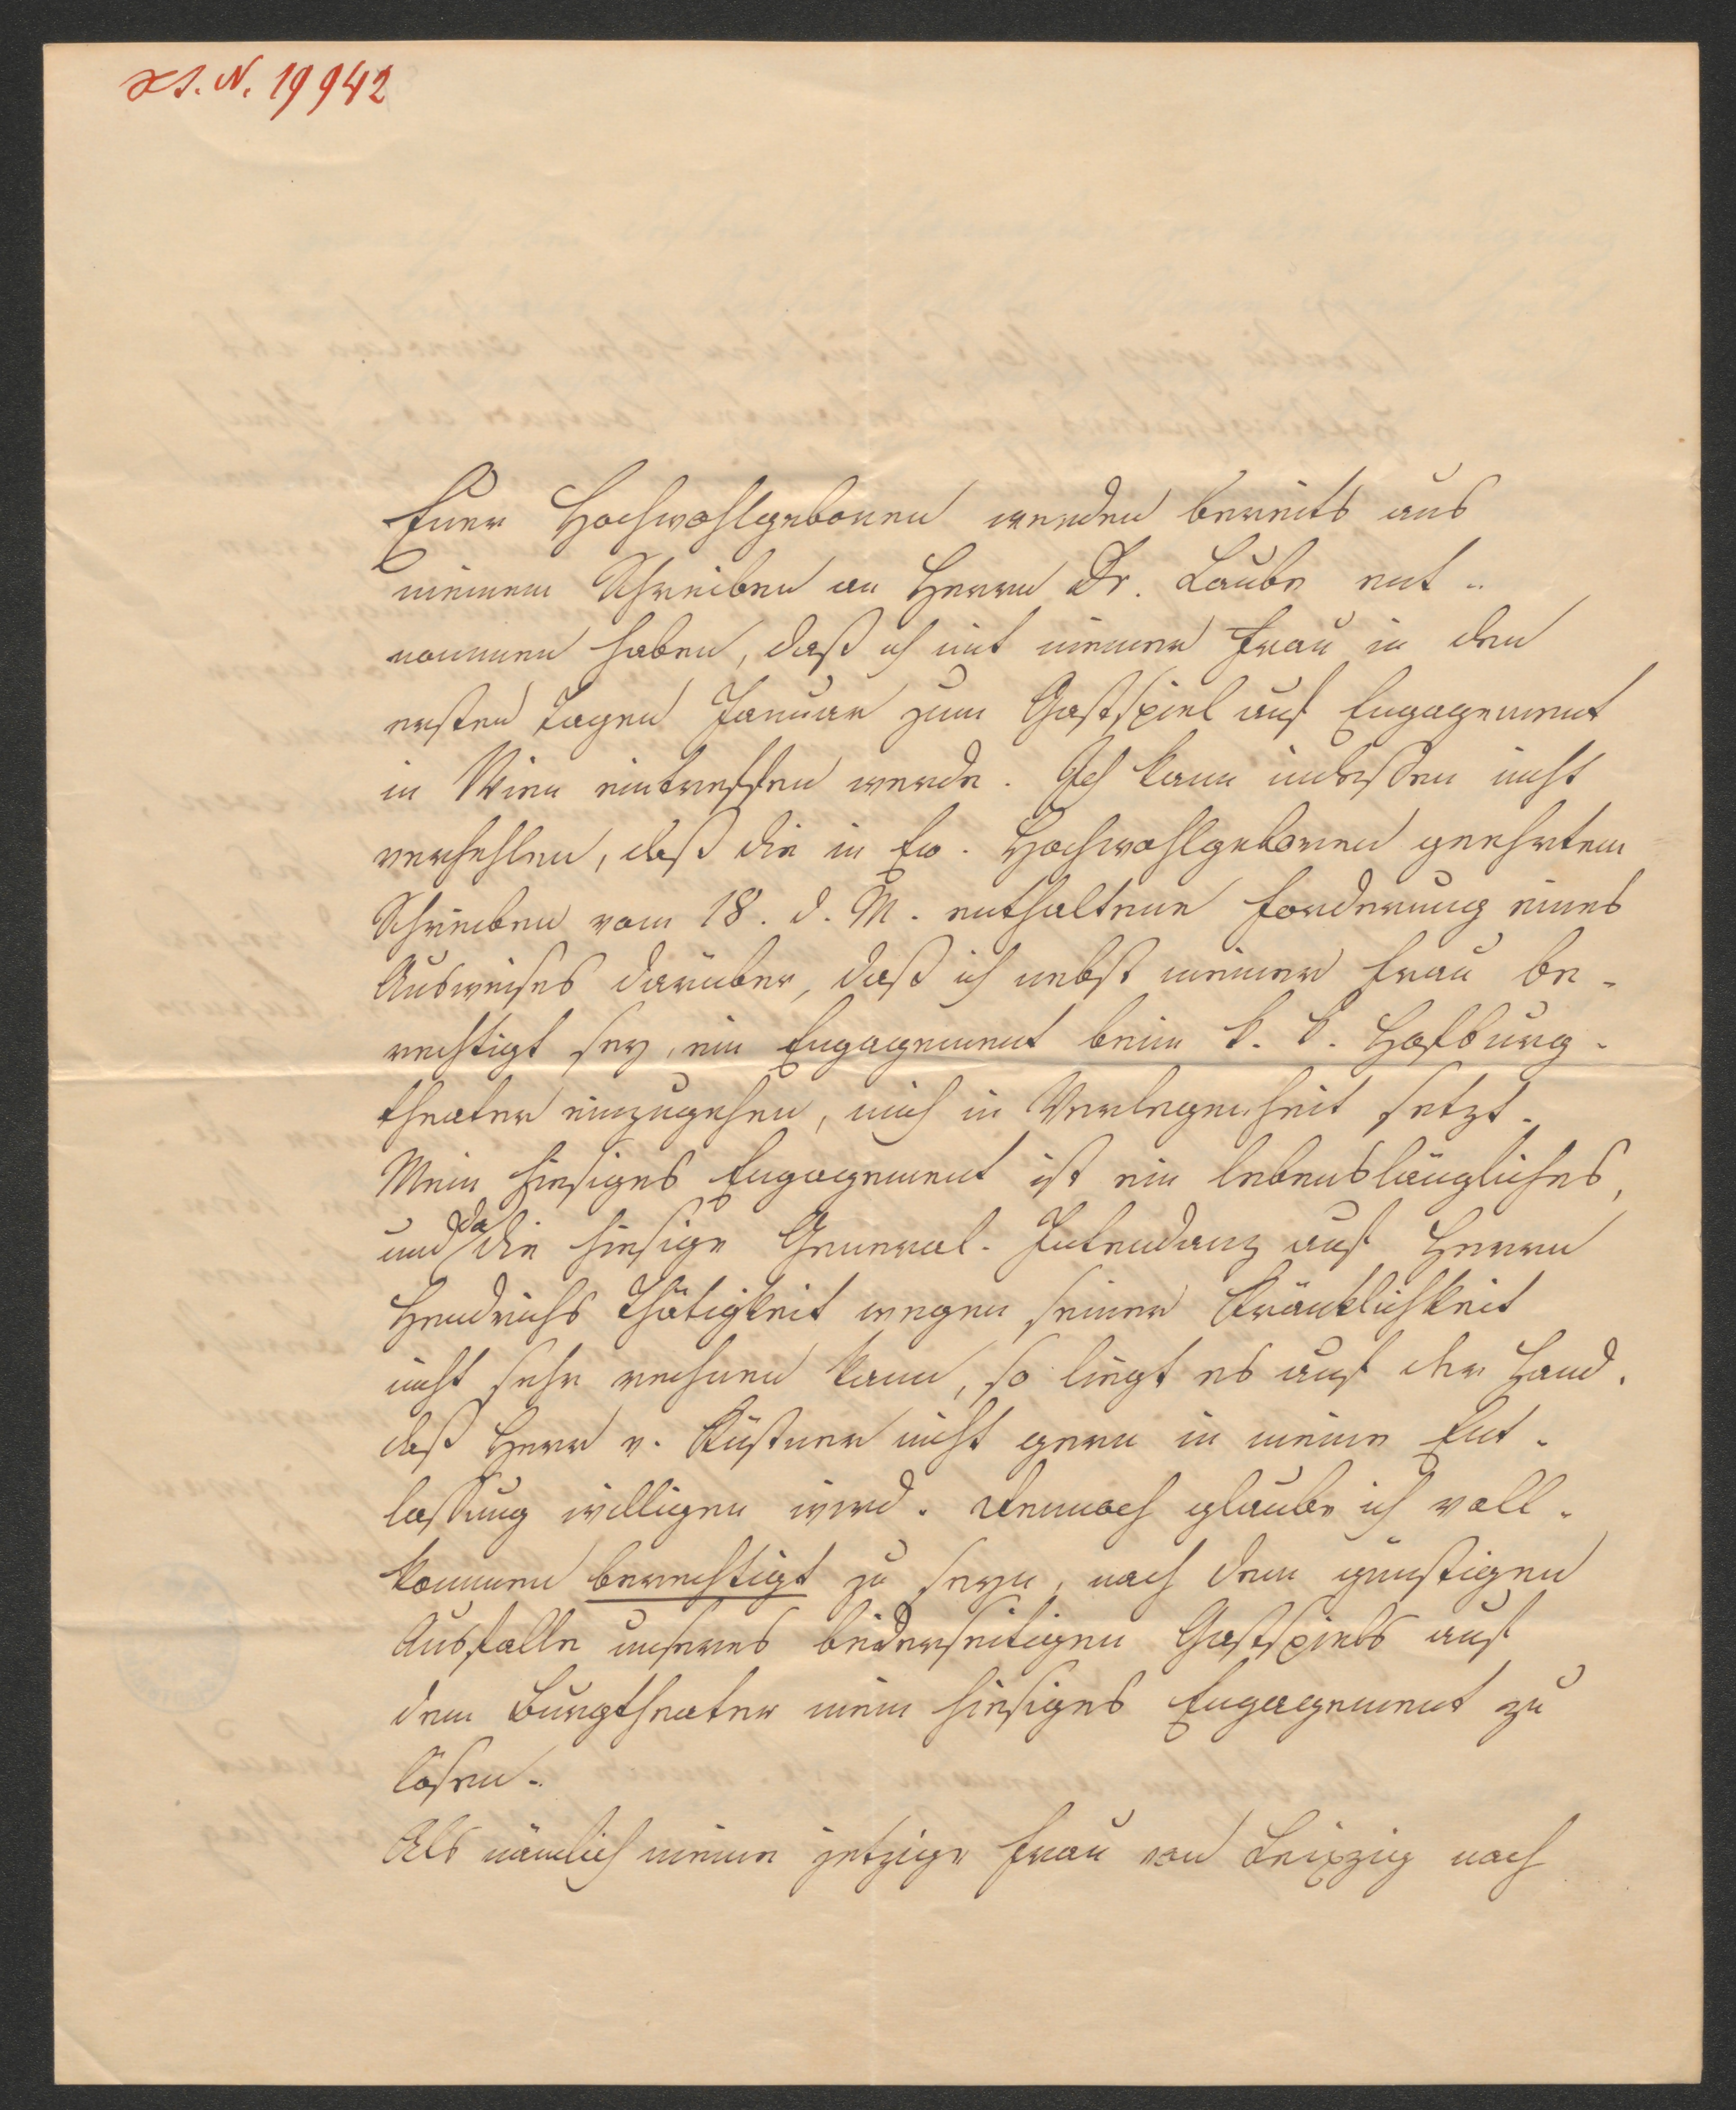 J. N. 19942
Euer Hochwohlgeboren werden bereits aus
meinem Schreiben an Herrn Dr. Laube ent-
nommen haben, daß ich mit meiner Frau in den
ersten Tagen Januar zum Gastspiel auf Engagement
in Wien eintreffen werde. Ich kann indessen nicht
verhehlen, daß die in Ew. Hochwohlgeboren geehrtem
Schreiben vom 18. d. M. enthaltene Forderung eines
Ausweises darüber, daß ich nebst meiner Frau be-
rechtigt sey, ein Engagement beim k. k. Hofburg-
theater einzugehen, mich in Verlegenheit setzt.
Mein hiesiges Engagement ist ein lebenslängliches,
und da die hiesige General-Intendanz auf Herrn
Hendrichs Thätigkeit wegen seiner Kränklichkeit
nicht sehr rechnen kann, so liegt es auf der Hand,
daß Herr v. Küstner nicht gern in meine Ent-
lassung willigen wird. Dennoch glaube ich voll-
kommen berechtigt zu seyn, nach dem günstigen
Ausfalle unseres beiderseitigen Gastspiels auf
dem Burgtheater mein hiesiges Engagement zu
lösen.
Als nämlich meine jetzige Frau von Leipzig nach